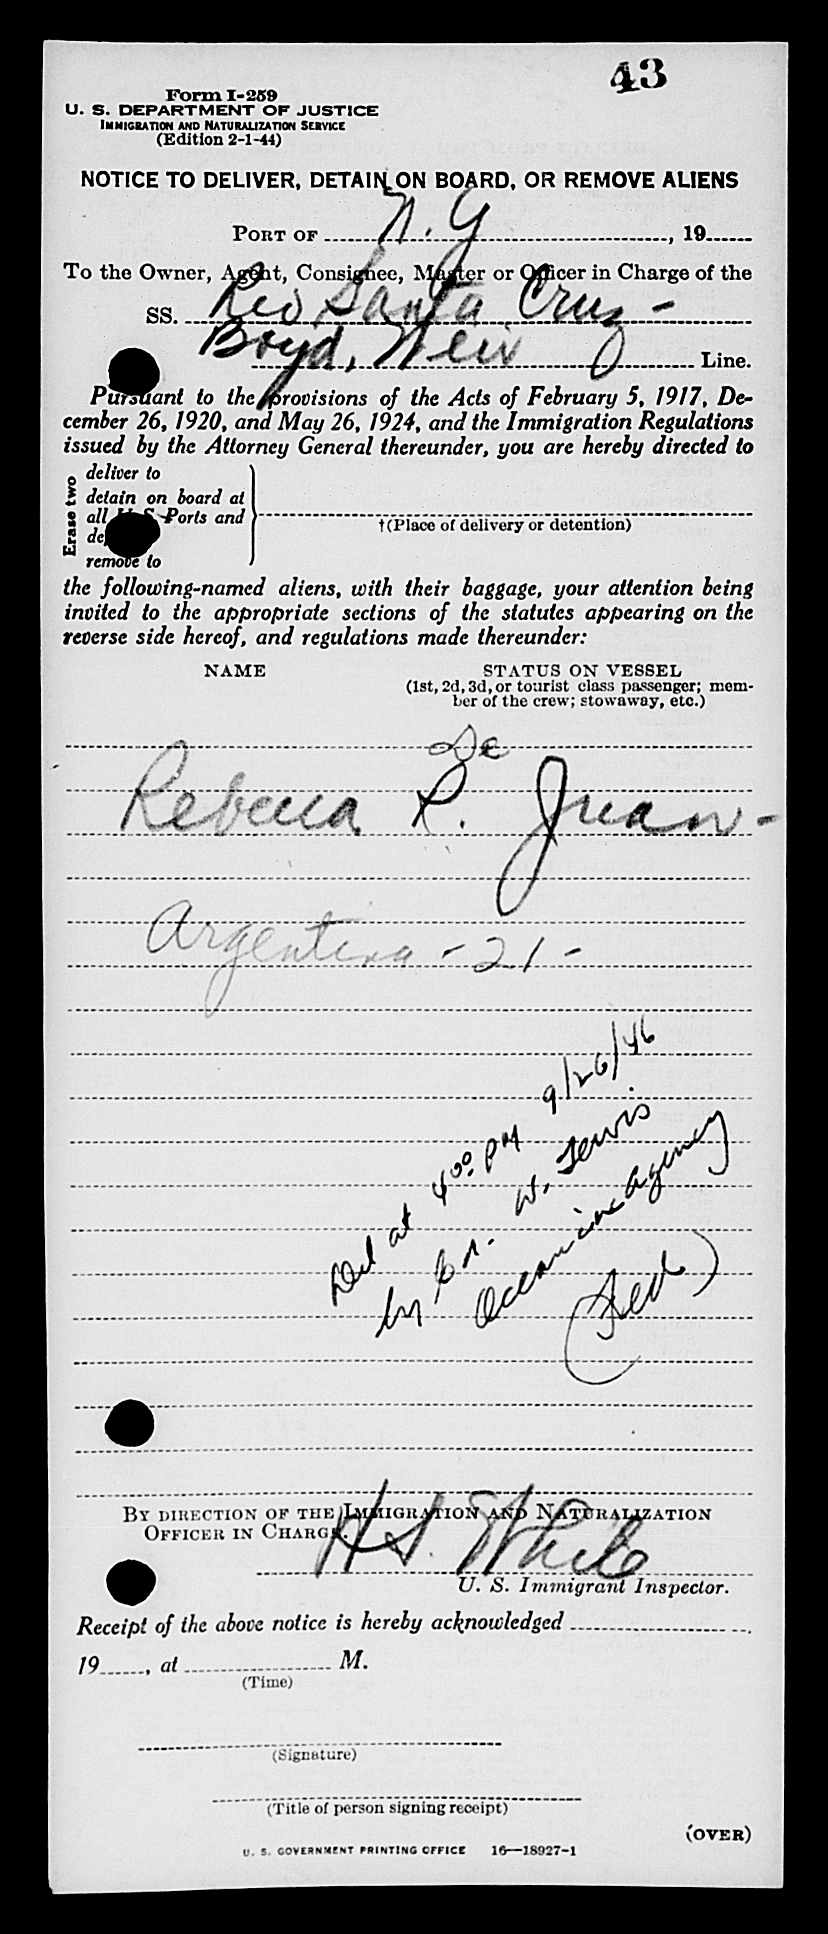 43
Form I-259
U. S. DEPARTMENT OF JUSTICE
IMMIGRATION AND NATURALIZATION SERVICE
(Edition 2-1-44)
NOTICE TO DELIVER, DETAIN ON BOARD, OR REMOVE ALIENS
PORT OF N.Y , 19
To the Owner, Agent, Consignee, Master or Officer in Charge of the
SS. Rio Santa Cruz -
Boyd, Weir Line.
Pursuant to the provisions of the Acts of February 5, 1917, De-
cember 26, 1920, and May 26, 1924, and the Immigration Regulations
issued by the Attorney General thereunder, you are hereby directed to
Erase two
deliver to
detain on board at
all U S Ports and
†(Place of delivery or detention)
remove to
the following-named aliens, with their baggage, your attention being
invited to the appropriate sections of the statutes appearing on the
reverse side hereof, and regulations made thereunder:
NAME STATUS ON VESSEL
(1st, 2d, 3d, or tourist class passenger; mem-
ber of the crew; stowaway, etc.)
De
Rebecca R. Juan -
Argentina - 21 -
Del at 4 00 PM 9/26/46
by W. Lewis
Oceanic Agency
BY DIRECTION OF THE IMMIGRATION AND NATURALIZATION
OFFICER IN CHARGE.
H S. White
U. S. Immigrant Inspector.
Receipt of the above notice is hereby acknowledged
19 , at M.
(Time)
(Signature)
(Title of person signing receipt)
(OVER)
U. S. GOVERNMENT PRINTING OFFICE 16—18927-1